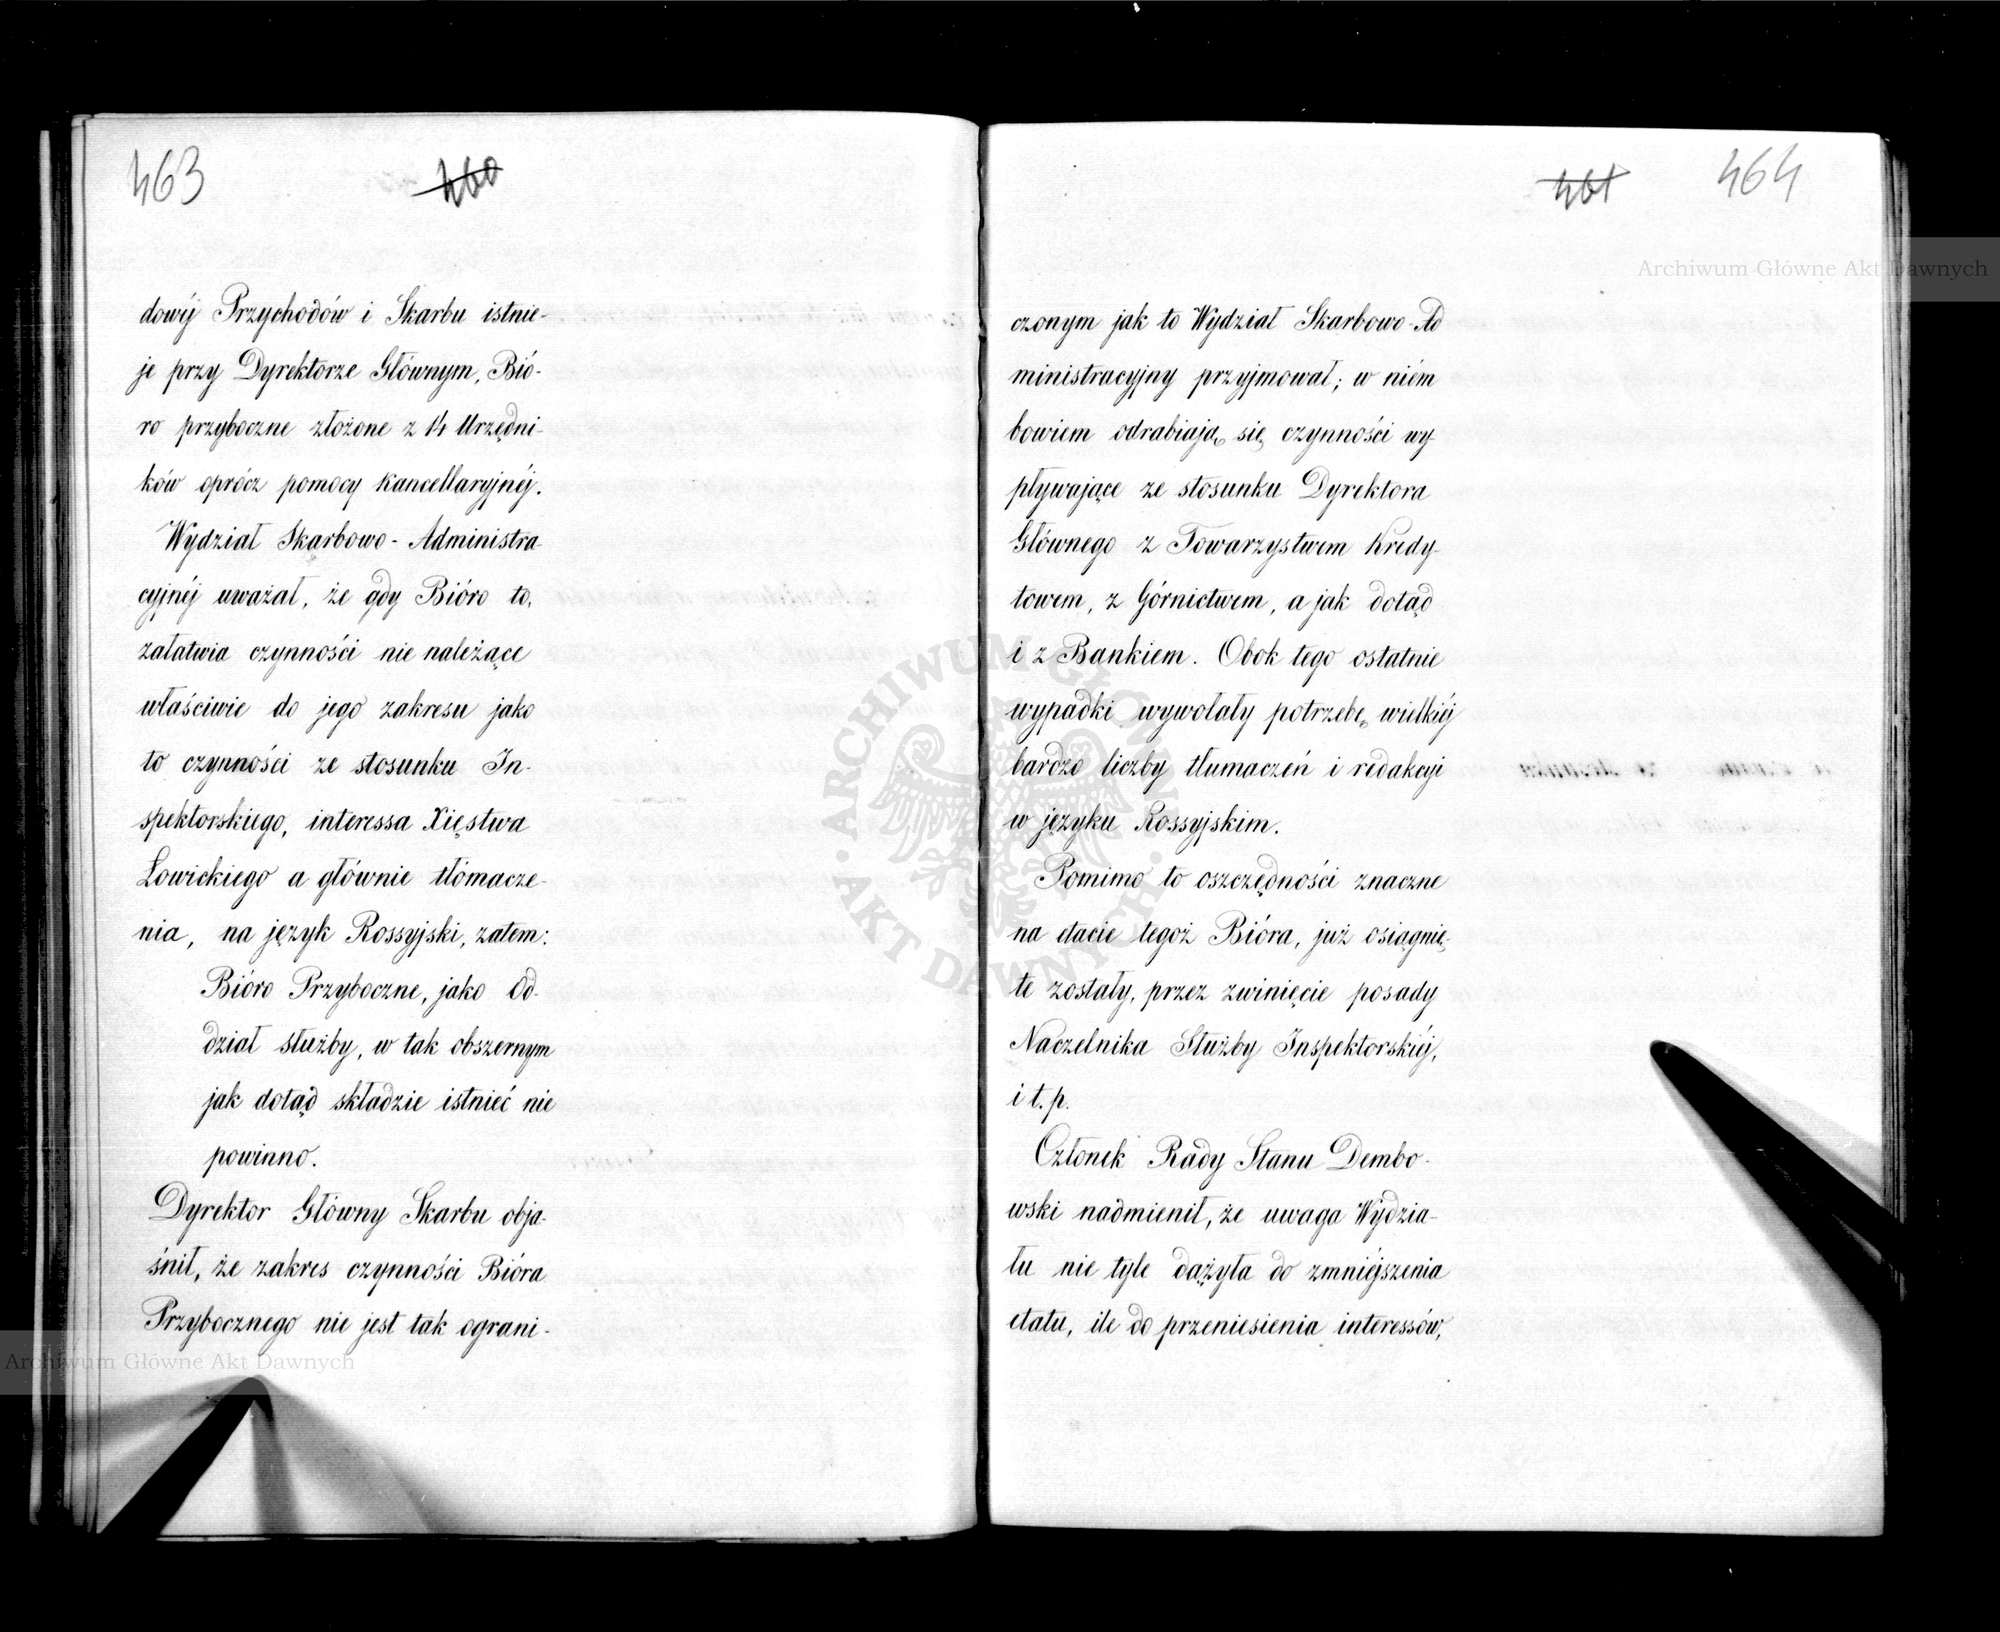 463
460
dowéj Przychodów i Skarbu istnie-
je przy Dyrektorze Głównym, Bió-
ro przyboczne złożone z 14 Urzędni-
ków oprócz pomocy kancellaryjnéj.
Wydział Skarbowo-Administra
cyjnéj uważał, że gdy Bióro to,
załatwia czynności nie należące
właściwie do jego zakresu jako
to czynności ze stosunku In-
spektorskiego, interessa Xięstwa
Łowickiego a głównie tłómacze-
nia, na język Rossyjski, zatem:
Bióro Przyboczne, jako Od-
dział służby, w tak obszernym
jak dotąd składzie istnieć nie
powinno.
Dyrektor Główny Skarbu obja-
śnił, że zakres czynności Bióra
Przybocznego nie jest tak ograni-
461
464
czonym jak to Wydział Skarbowo-Ad
ministracyjny przyjmował; w niém
bowiem odrabiają się czynności wy-
pływające ze stosunku Dyrektora
Głównego z Towarzystwem Kredy-
towem, z Górnictwem, a jak dotąd
i z Bankiem. Obok tego ostatnie
wypadki wywołały potrzebę wielkiéj
bardzo liczby tłumaczeń i redakcyi
w języku Rossyjskim.
Pomimo to oszczędności znaczne
na etacie tegoż Bióra, już osiągnię-
te zostały, przez zwinięcie posady
Naczelnika Służby Inspektorskiéj,
i t. p.
Członek Rady Stanu Dembo-
wski nadmienił, że uwaga Wydzia-
łu nie tyle dążyła do zmniéjszenia
etatu, ile do przeniesienia interessów,
Archiwum Główne Akt Dawnych
Archiwum Główne Akt Dawnych
ARCHIWUM GŁÓWNE
AKT DAWNYCH